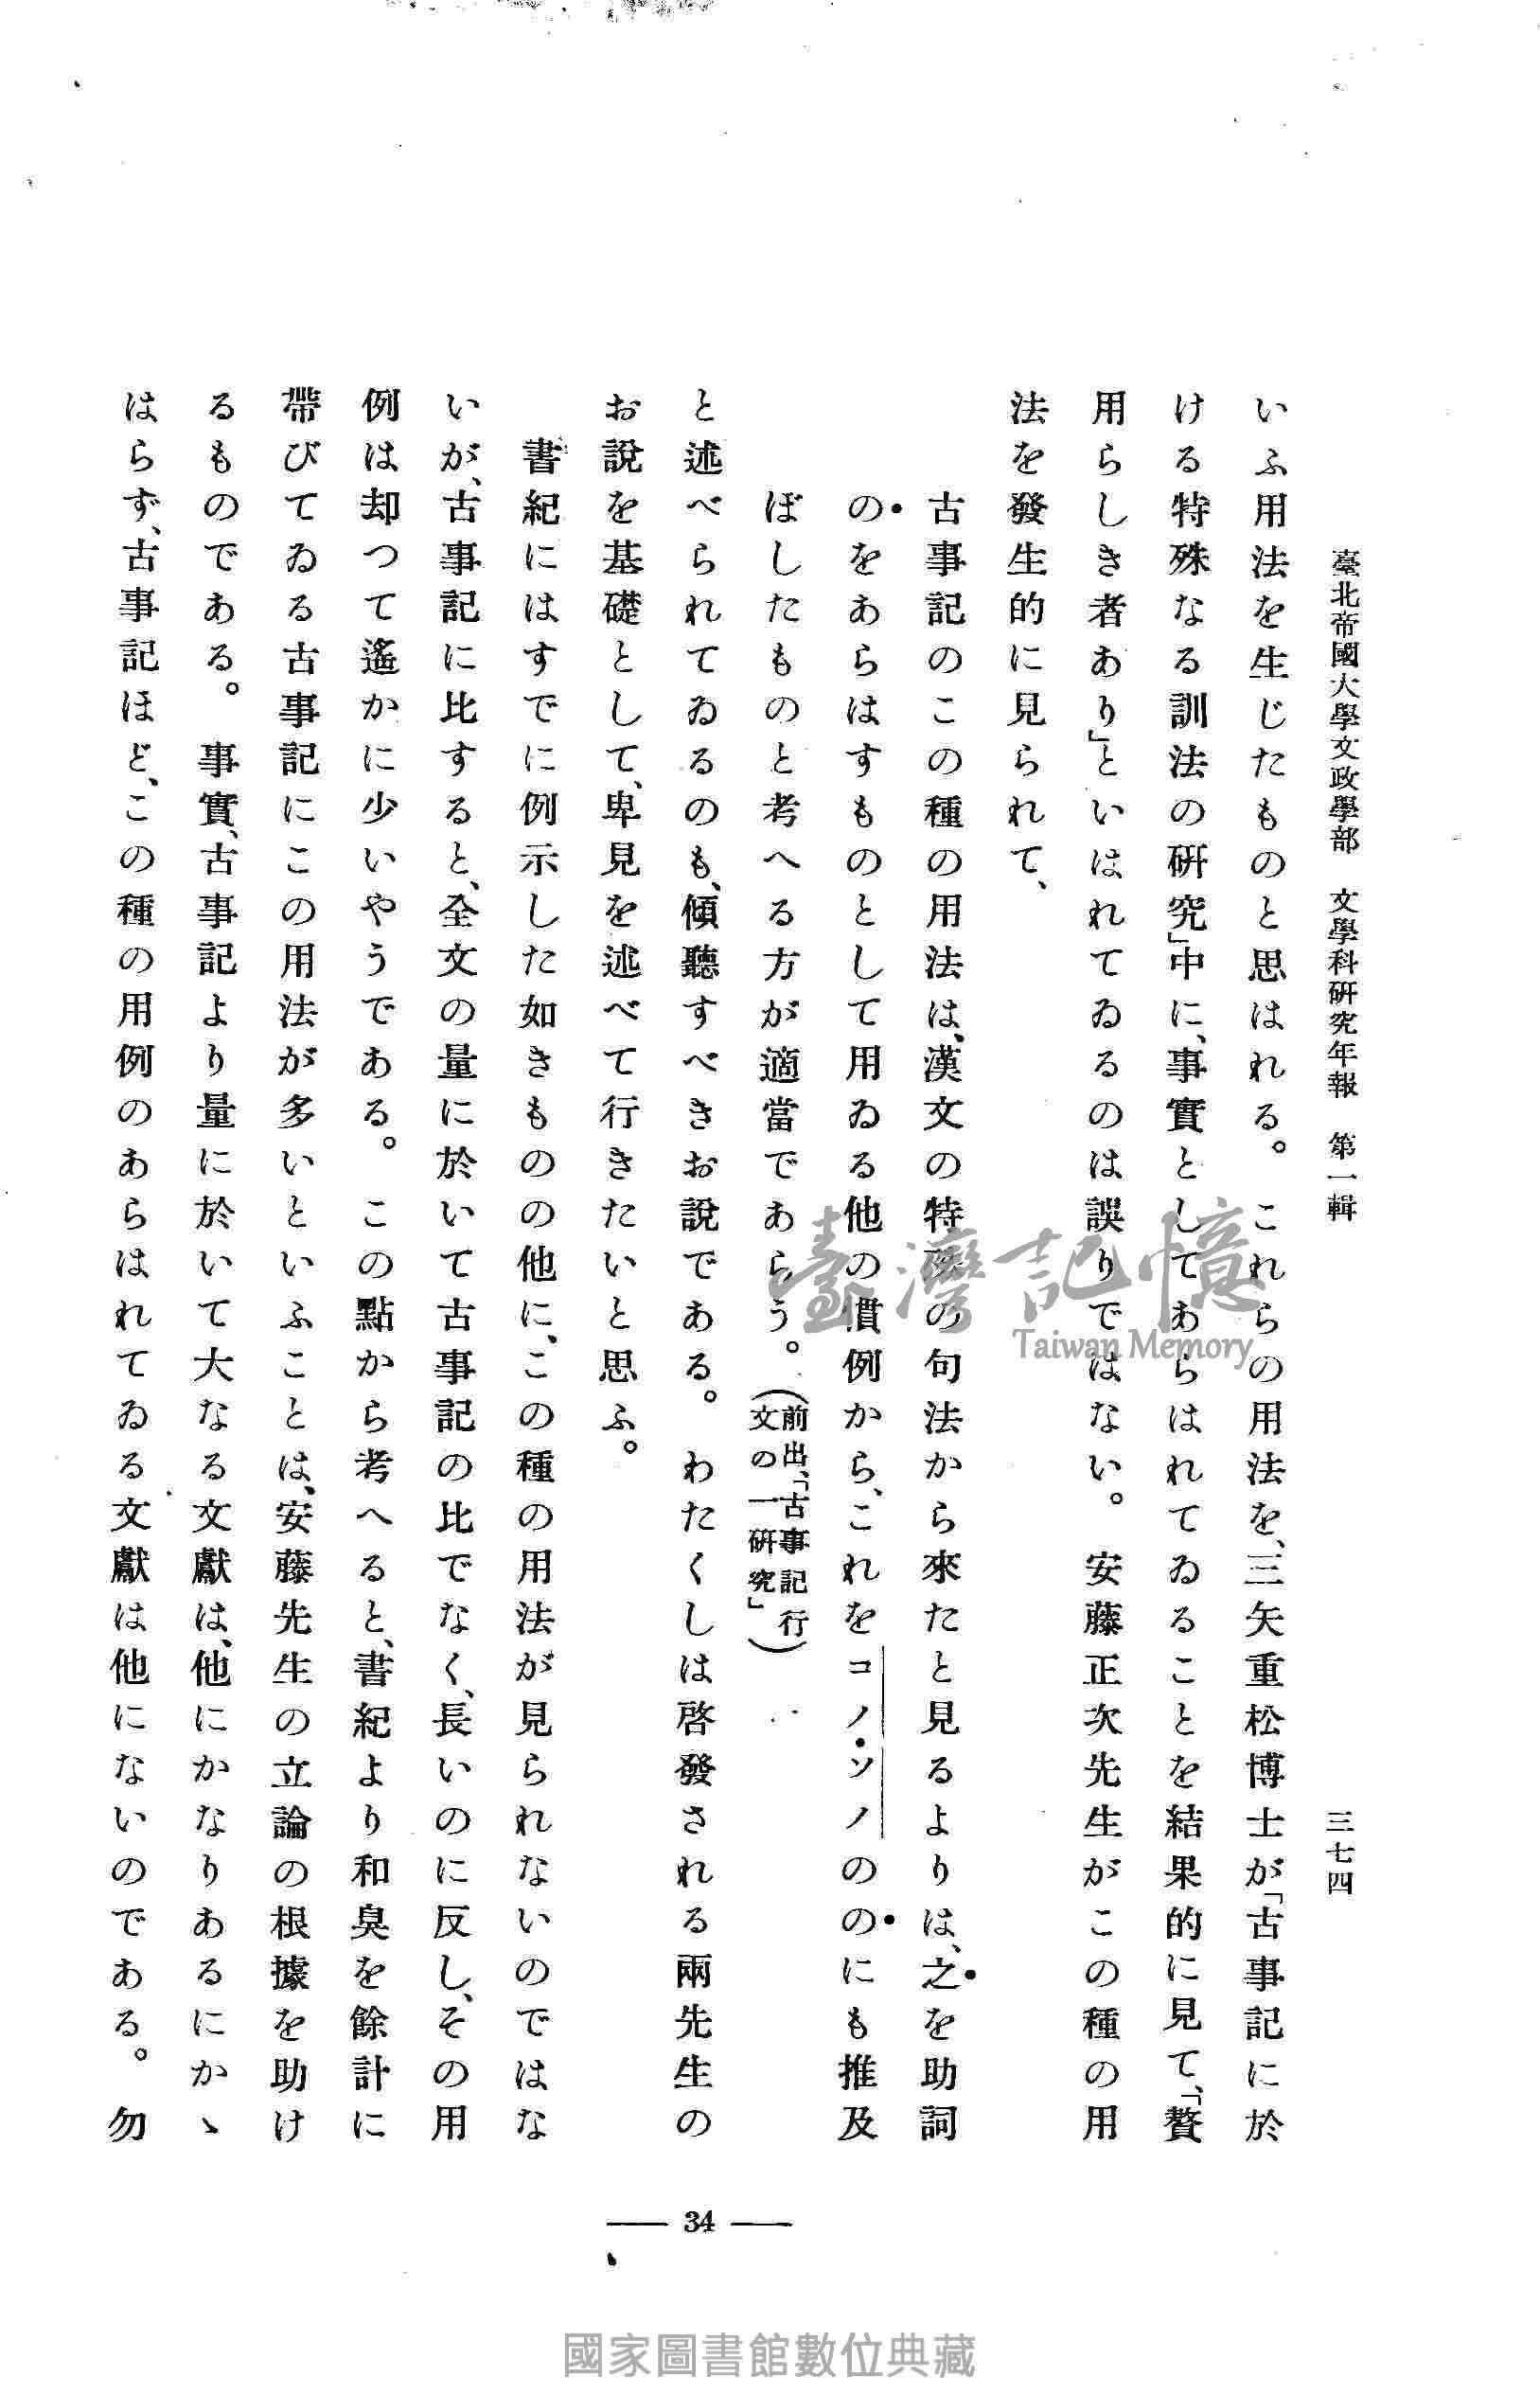 臺北帝國大學文政學部　文學科硏究年報　第一輯　三七四
いふ用法を生じたものと思はれる。　これらの用法を、三矢重松博士が「古事記に於
ける特殊なる訓法の硏究」中に、事實としてあらはれてゐることを結果的に見て、「贅
用らしき者あり」といはれてゐるのは誤りではない。　安藤正次先生がこの種の用
法を發生的に見られて、
古事記のこの種の用法は、漢文の特殊の句法から來たと見るよりは、之を助詞
のをあらはすものとして用ゐる他の慣例から、これをコノ・ソノののにも推及
ぼしたものと考へる方が適當であらう。（前出、「古事記行
文の一硏究」）
と述べられてゐるのも、傾聽すべきお說である。　わたくしは啓發される兩先生の
お說を基礎として、卑見を述べて行きたいと思ふ。
書紀にはすでに例示した如きものの他に、この種の用法が見られないのではな
いが、古事記に比すると、全文の量に於いて古事記の比でなく、長いのに反し、その用
例は却つて遙かに少いやうである。　この點から考へると、書紀より和臭を餘計に
帶びてゐる古事記にこの用法が多いといふことは、安藤先生の立論の根據を助け
るものである。　事實、古事記より量に於いて大なる文獻は、他にかなりあるにかゝ
はらず、古事記ほど、この種の用例のあらはれてゐる文獻は他にないのである。　勿
34
臺灣記憶
Taiwan Memory
國家圖書館數位典藏